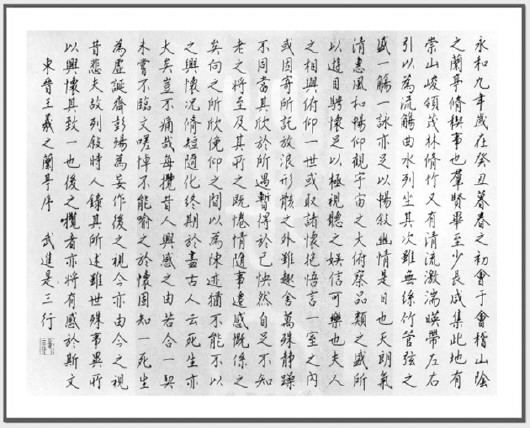 永和九年歲在癸丑暮春之初會于會稽山陰
之蘭亭脩稧事也羣賢畢至少長咸集此地有
崇山峻領茂林脩竹又有清流激湍暎帶左右
引以為流觴曲水列坐其次雖無絲竹管弦之
盛一觴一詠亦足以暢敘幽情是日也天朗氣
清惠風和暢仰觀宇宙之大俯察品類之盛所
以遊目騁懷足以極視聽之娛信可樂也夫人
之相與俯仰一世或取諸懷抱悟言一室之內
或因寄所託放浪形骸之外雖趣舍萬殊靜躁
不同當其欣於所遇暫得於己快然自足不知
老之將至及其所之既惓情隨事遷感慨係之
矣向之所欣俛仰之間以為陳迹猶不能不以
之興懷況脩短隨化終期於盡古人云死生亦
大矣豈不痛哉每攬昔人興感之由若合一契
未嘗不臨文嗟悼不能喻之於懷固知一死生
為虛誕齊彭殤為妄作後之視今亦由今之視
昔悲夫故列敘時人錄其所述雖世殊事異所
以興懷其致一也後之攬者亦將有感於斯文
東晉王羲之蘭亭序 武進是三行